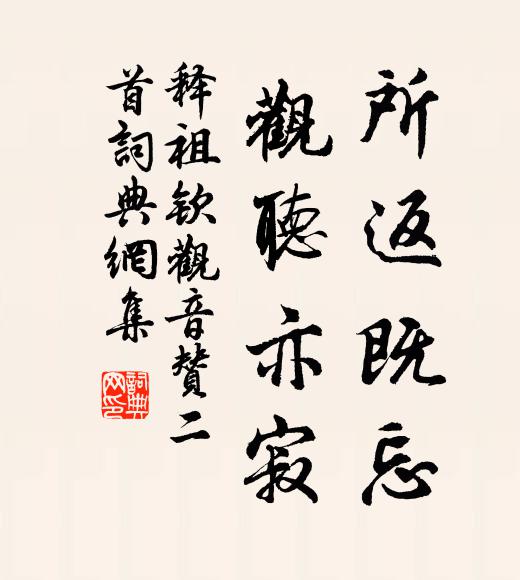 所返既忘
觀聽亦寂
释祖钦觀音贊二
首詞典網集
詞典
网印